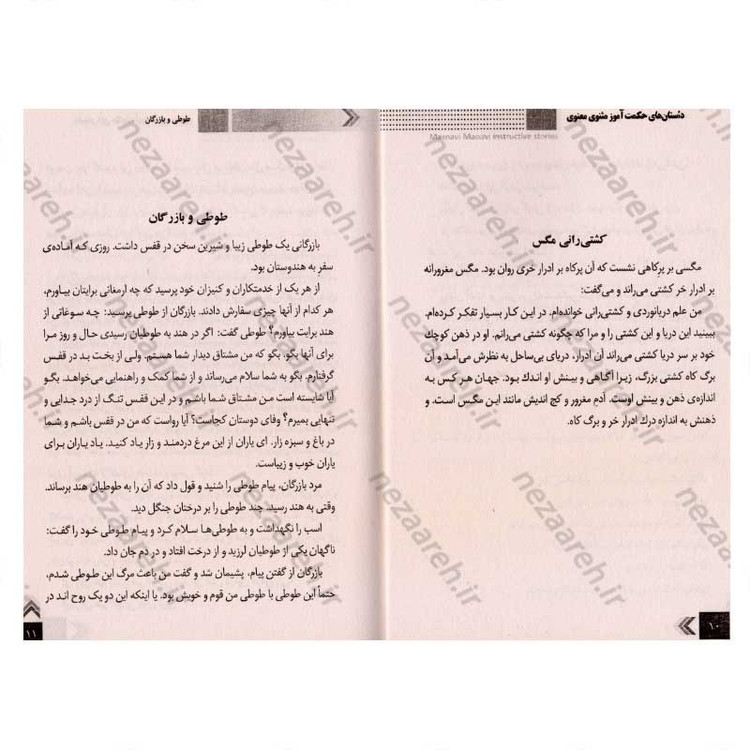 دستان‌های حکمت آموز مثنوی معنوی
Masnavi Manavi instructive stories
کشتی‌رانی مگس
مگسی بر پرِکاهی نشست که آن پرکاه بر ادرار خری روان بود. مگس مغرورانه
بر ادرار خر کشتی می‌راند و می‌گفت:
من علم دریانوردی و کشتی‌رانی خوانده‌ام. در این کار بسیار تفکر کرده‌ام.
ببینید این دریا و این کشتی را و مرا که چگونه کشتی می‌رانم. او در ذهن کوچك
خود بر سر دریا کشتی می‌راند آن ادرار، دریای بی‌ساحل به نظرش می‌آمد و آن
برگ کاه کشتی بزرگ، زیرا آگاهی و بینش او اندك بود. جهان هر کس به
اندازه‌ی ذهن و بینش اوست. آدمِ مغرور و کج اندیش مانند این مگس است. و
ذهنش به اندازه درك ادرار خر و برگ کاه.
۱۰
طوطی و بازرگان
طوطی و بازرگان
بازرگانی یک طوطی زیبا و شیرین سخن در قفس داشت. روزی که آماده‌ی
سفر به هندوستان بود.
از هر یک از خدمتکاران و کنیزان خود پرسید که چه ارمغانی برایتان بیاورم،
هر کدام از آنها چیزی سفارش دادند. بازرگان از طوطی پرسید: چه سوغاتی از
هند برایت بیاورم؟ طوطی گفت: اگر در هند به طوطیان رسیدی حال و روز مرا
برای آنها بگو. بگو که من مشتاق دیدار شما هستم. ولی از بخت بد در قفس
گرفتارم. بگو به شما سلام می‌رساند و از شما کمک و راهنمایی می‌خواهد. بگو
آیا شایسته است من مشتاق شما باشم و در این قفس تنگ از درد جدایی و
تنهایی بمیرم؟ وفای دوستان کجاست؟ آیا رواست که من در قفس باشم و شما
در باغ و سبزه زار. ای یاران از این مرغ دردمند و زار یاد کنید. یاد یاران برای
یاران خوب و زیباست.
مرد بازرگان، پیام طوطی را شنید و قول داد که آن را به طوطیان هند برساند.
وقتی به هند رسید. چند طوطی را بر درختان جنگل دید.
اسب را نگهداشت و به طوطی‌ها سلام کرد و پیام طوطی خود را گفت:
ناگهان یکی از طوطیان لرزید و از درخت افتاد و در دم جان داد.
بازرگان از گفتن پیام، پشیمان شد و گفت من باعث مرگ این طوطی شدم،
حتماً این طوطی با طوطی من قوم و خویش بود. یا اینکه این دو یک روح اند در
۱۱
nezaareh.ir
nezaareh.ir
nezaareh.ir
nezaareh.ir
nezaareh.ir
nezaareh.ir
nezaareh.ir
nezaareh.ir